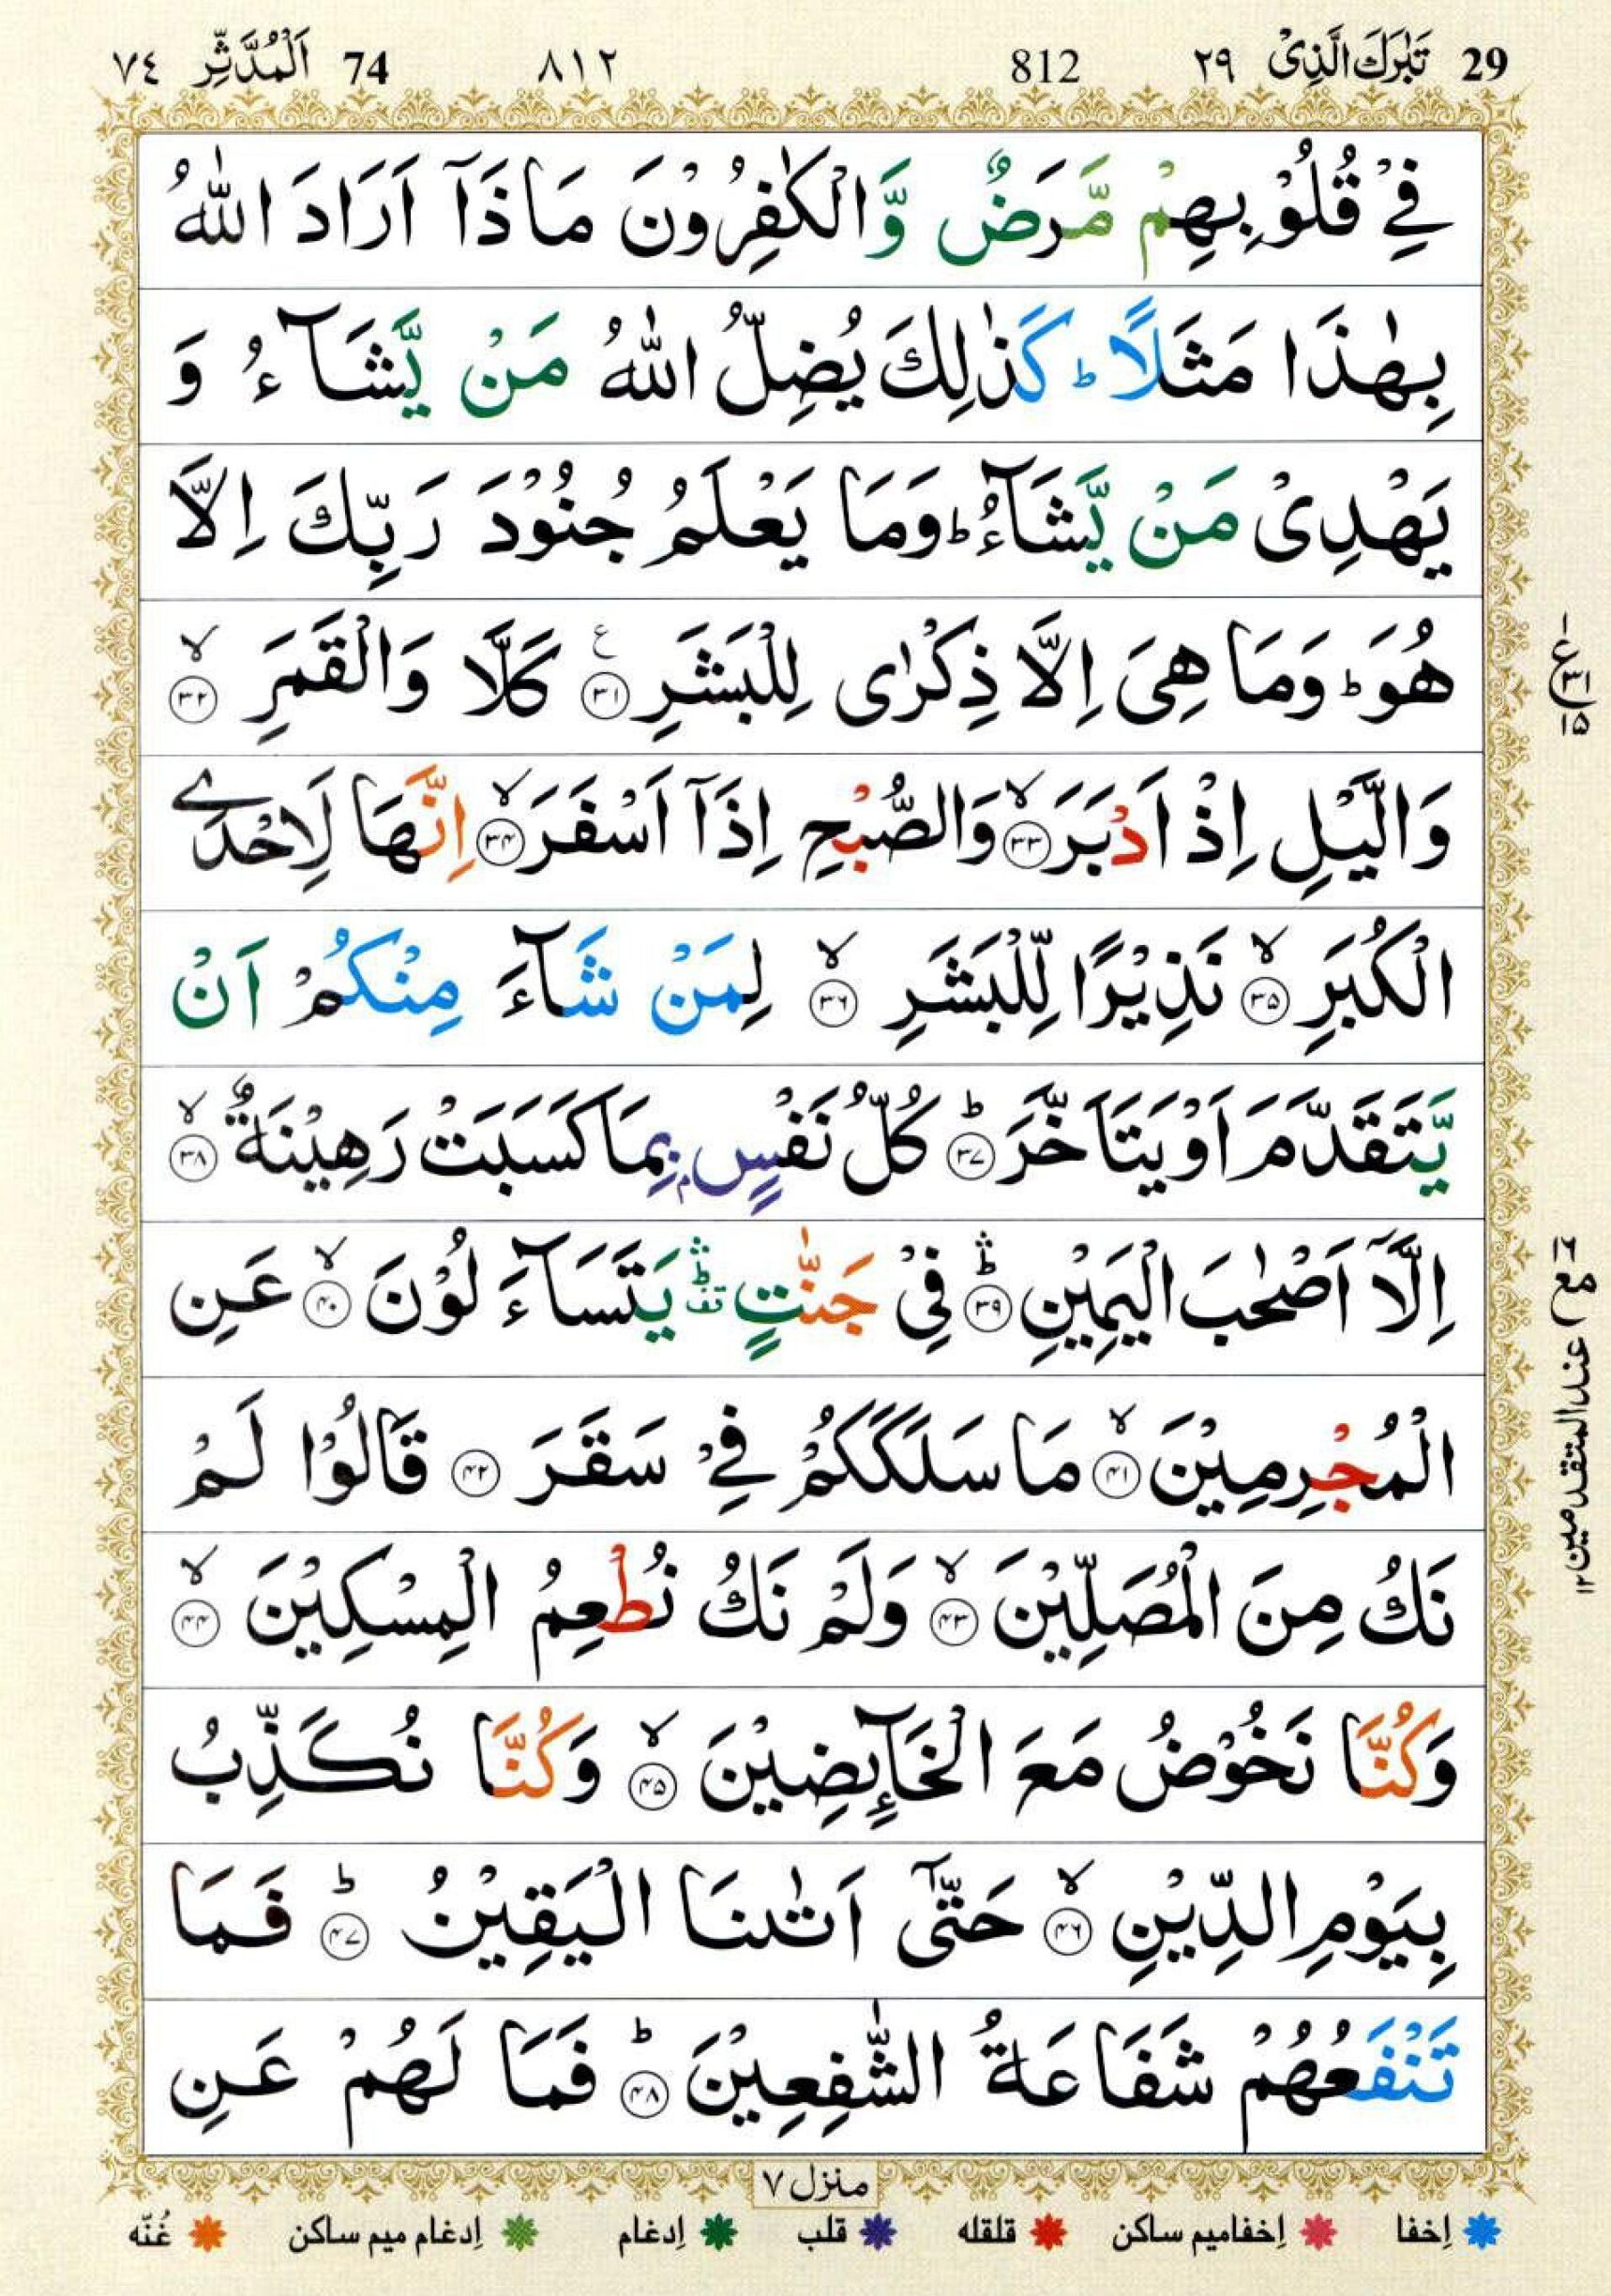 29 تَبٰرَكَ الَّذِیْ ٢٩ 812 ٨١٢ 74 اَلْمُدَّثِّر ٧٤
فِیْ قُلُوْبِهِمْ مَّرَضٌ وَّالْكٰفِرُوْنَ مَاذَاۤ اَرَادَ اللّٰهُ
بِهٰذَا مَثَلًا ؕ كَذٰلِكَ یُضِلُّ اللّٰهُ مَنْ یَّشَآءُ وَ
یَهْدِیْ مَنْ یَّشَآءُ ؕ وَمَا یَعْلَمُ جُنُوْدَ رَبِّكَ اِلَّا
هُوَ ؕ وَمَا هِیَ اِلَّا ذِكْرٰی لِلْبَشَرِ ۳۱ ع كَلَّا وَالْقَمَرِ ۙ ۳۲
وَالَّیْلِ اِذْ اَدْبَرَ ۙ ۳۳ وَالصُّبْحِ اِذَاۤ اَسْفَرَ ۙ ۳۴ اِنَّهَا لَاِحْدَی
الْكُبَرِ ۙ ۳۵ نَذِیْرًا لِّلْبَشَرِ ۙ ۳۶ لِمَنْ شَآءَ مِنْكُمْ اَنْ
یَّتَقَدَّمَ اَوْ یَتَاَخَّرَ ؕ ۳۷ كُلُّ نَفْسٍۭ بِمَا كَسَبَتْ رَهِیْنَةٌ ۙ ۳۸
اِلَّاۤ اَصْحٰبَ الْیَمِیْنِ ؕۛ ۳۹ فِیْ جَنّٰتٍ ؕۛ قف یَتَسَآءَلُوْنَ ۙ ۴۰ عَنِ
الْمُجْرِمِیْنَ ۙ ۴۱ مَا سَلَكَكُمْ فِیْ سَقَرَ ۴۲ قَالُوْا لَمْ
نَكُ مِنَ الْمُصَلِّیْنَ ۙ ۴۳ وَلَمْ نَكُ نُطْعِمُ الْمِسْكِیْنَ ۙ ۴۴
وَكُنَّا نَخُوْضُ مَعَ الْخَآىِٕضِیْنَ ۙ ۴۵ وَكُنَّا نُكَذِّبُ
بِیَوْمِ الدِّیْنِ ۙ ۴۶ حَتّٰۤی اَتٰىنَا الْیَقِیْنُ ؕ ۴۷ فَمَا
تَنْفَعُهُمْ شَفَاعَةُ الشّٰفِعِیْنَ ؕ ۴۸ فَمَا لَهُمْ عَنِ
١ ع ۳۱ ۱۵
١٦ مع عند المتقدمین ١٢
منزل ٧
اِخفا اِخفا میم ساکن قلقله قلب اِدغام اِدغام میم ساکن غُنّه